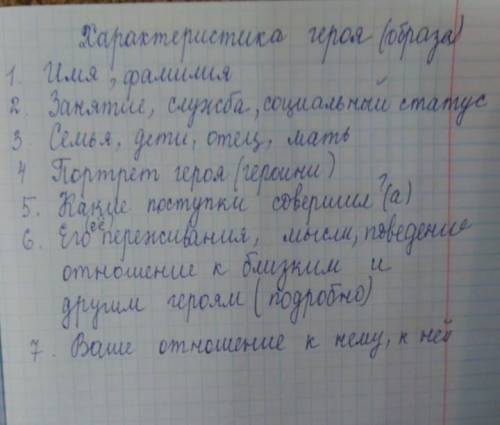 Характеристика героя (образа)
1. Имя, фамилия
2. Занятие, служба, социальный статус
3. Семья, дети, отец, мать
4 Портрет героя (героини)
5. Какие поступки совершил (а)?
6. Его (её) переживания, мысли, поведение
отношение к близким и
другим героям (подробно)
7. Ваше отношение к нему, к ней